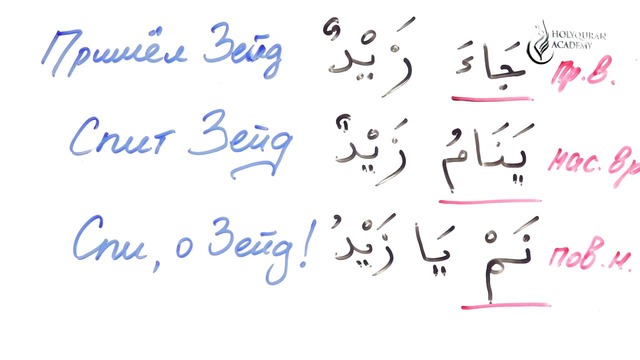 Пришёл Зейд جَاءَ زَيْدٌ пр.в.
Спит Зейд يَنَامُ زَيْدٌ нас.вр
Спи, о Зейд! نَمْ يَا زَيْدُ пов.н.
HOLYQURAN
ACADEMY